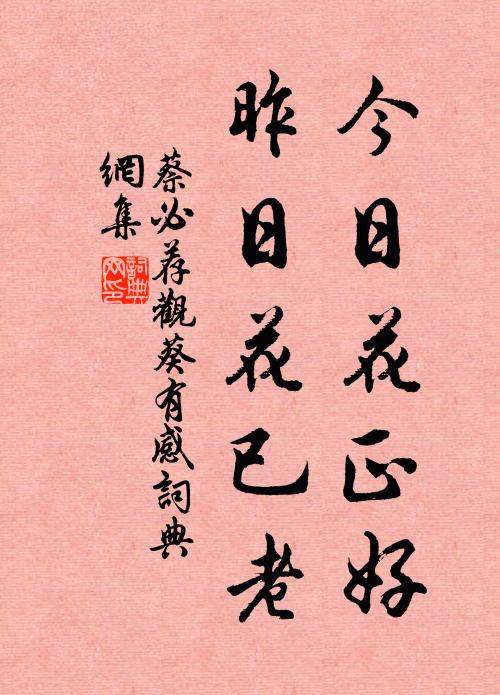 今日花正好
昨日花已老
蔡必荐觀葵有感詞典
網集
詞典
网印